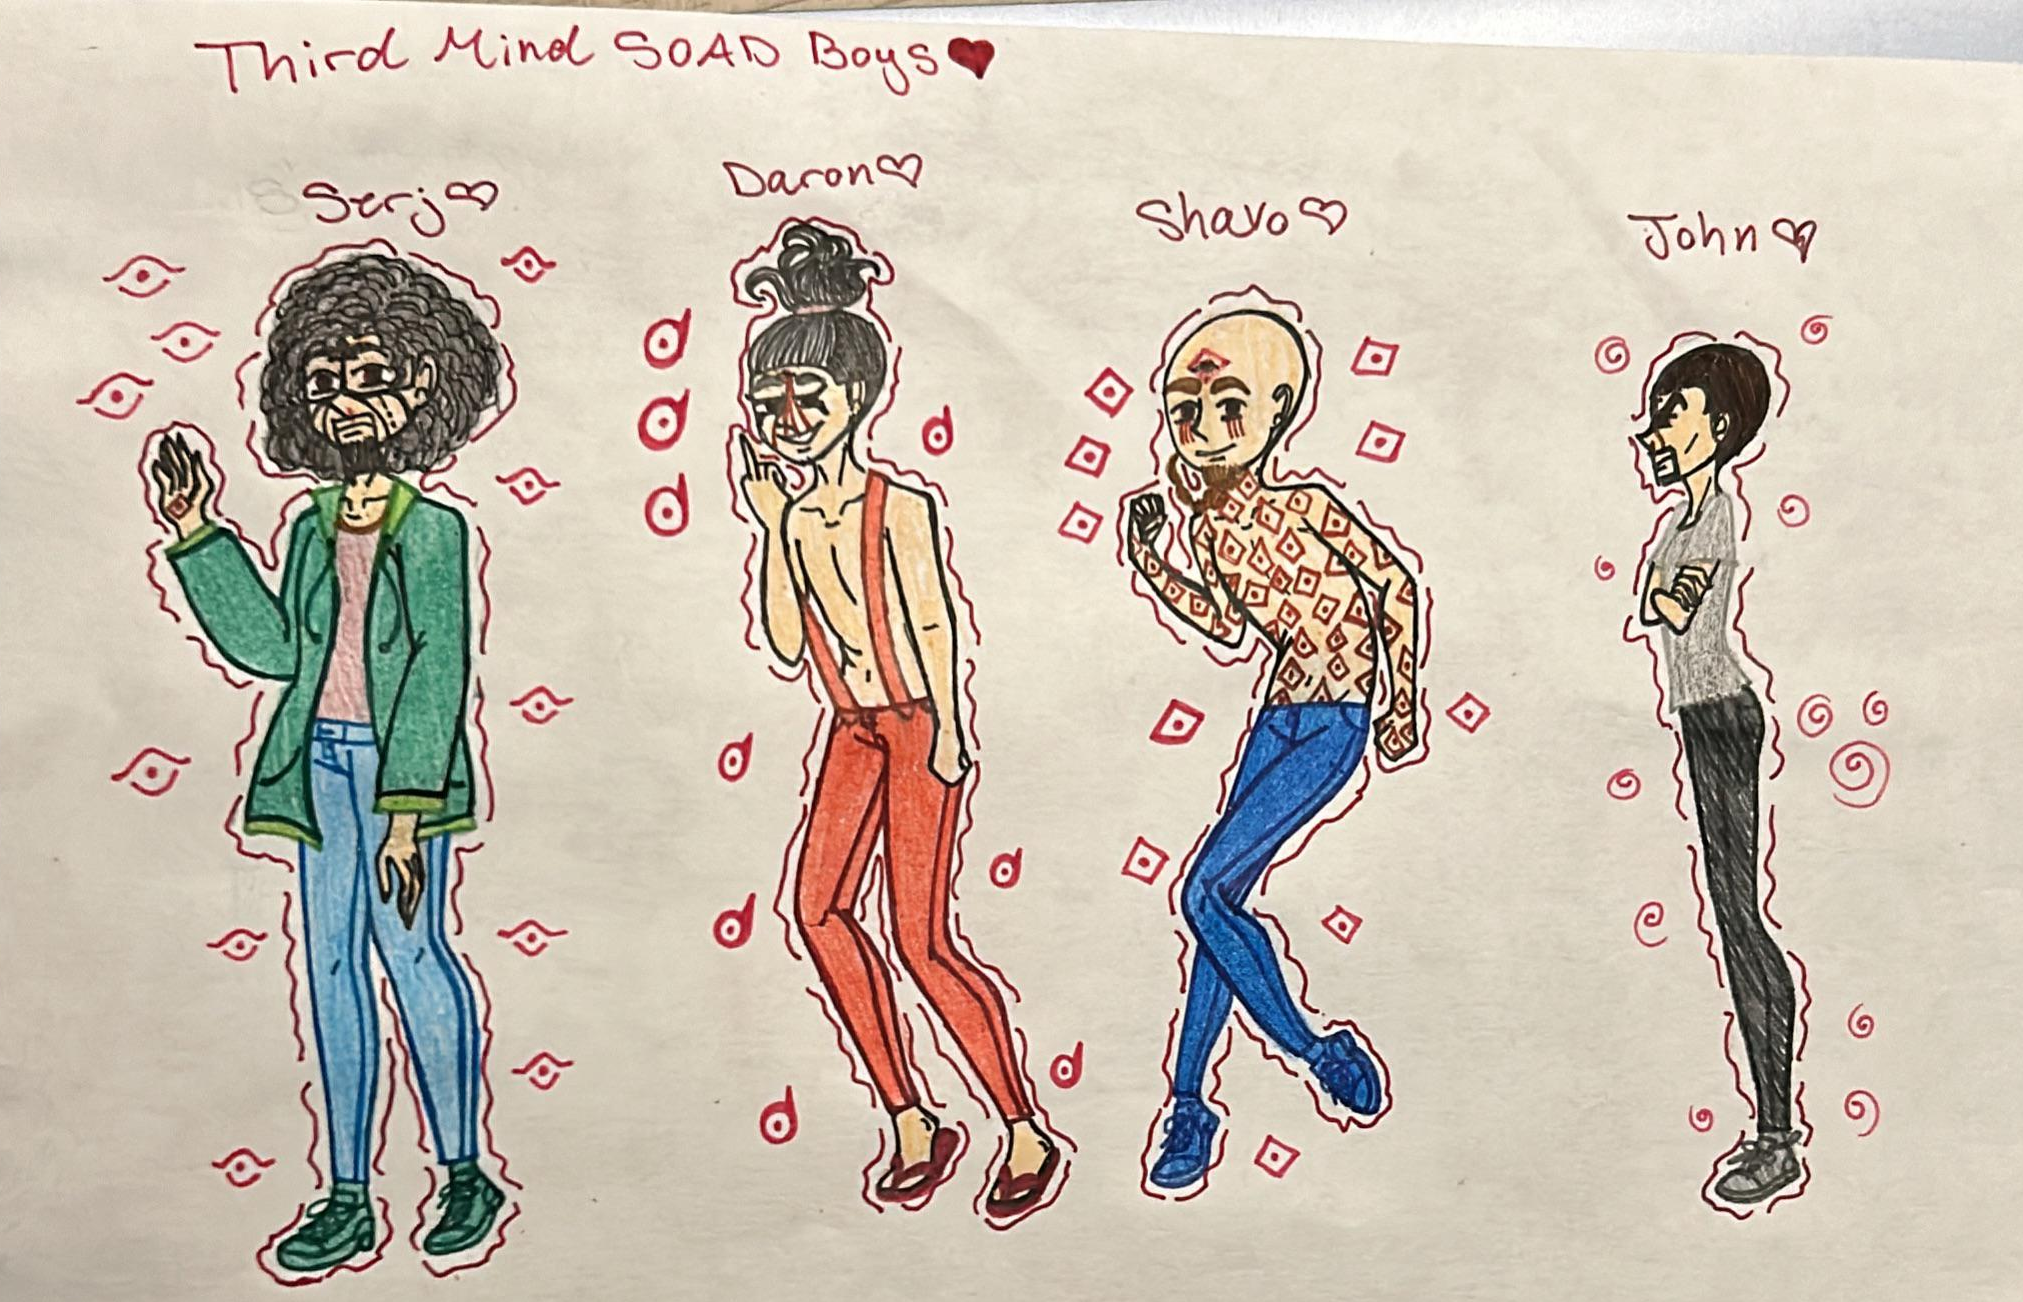 Third Mind SOAD Boys♥
Serj♡
Daron♡
Shavo♡
John♡